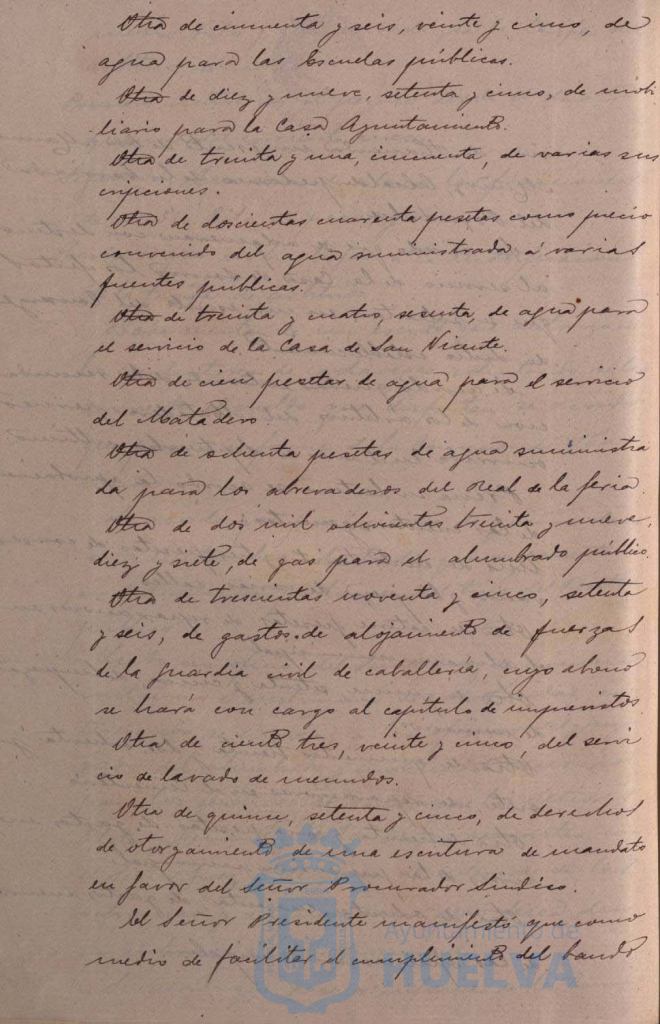 Otra de cincuenta y seis, veinte y cinco, de
agua para las Escuelas públicas.
Otra de diez y nueve, setenta y cinco, de mobi-
liario para la Casa Ayuntamiento.
Otra de treinta y una, cincuenta, de varias sus
cripciones.
Otra de doscientas cuarenta pesetas como precio
convenido del agua suministrada á varias
fuentes públicas.
Otra de treinta y cuatro, sesenta, de agua para
el servicio de la Casa de San Vicente.
Otra de cien pesetas de agua para el servicio
del Matadero.
Otra de ochenta pesetas de agua suministra
da para los abrevaderos del Real de la feria.
Otra de dos mil ochocientas treinta y nueve,
diez y siete, de gas para el alumbrado público.
Otra de trescientas noventa y cinco, setenta
y seis, de gastos de alojamiento de fuerzas
de la guardia civil de caballería, cuyo abono
se hará con cargo al capítulo de imprevistos.
Otra de ciento tres, veinte y cinco, del servi
cio de lavado de menudos.
Otra de quince, setenta y cinco, de derechos
de otorgamiento de una escritura de mandato
en favor del Señor Procurador Síndico.
El Señor Presidente manifestó que como
medio de facilitar el cumplimiento del bando
Ayuntamiento de
HUELVA